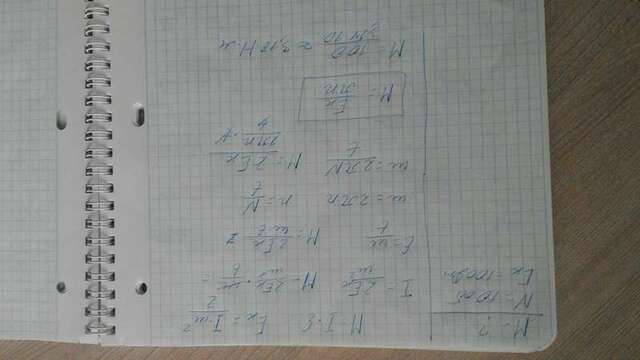 M - ?
N = 10 об
Eк = 100 Дж
M = I · ε Eк = I · ω² / 2
I = 2Eк / ω² M = 2Eк / ω² · ω / t =
ε = ω / t M = 2Eк / ω t
ω = 2πn n = N / t
ω = 2πN / t
M = Eк / πN
M = 100 / 3,14 · 10 ≈ 3,18 Н · м